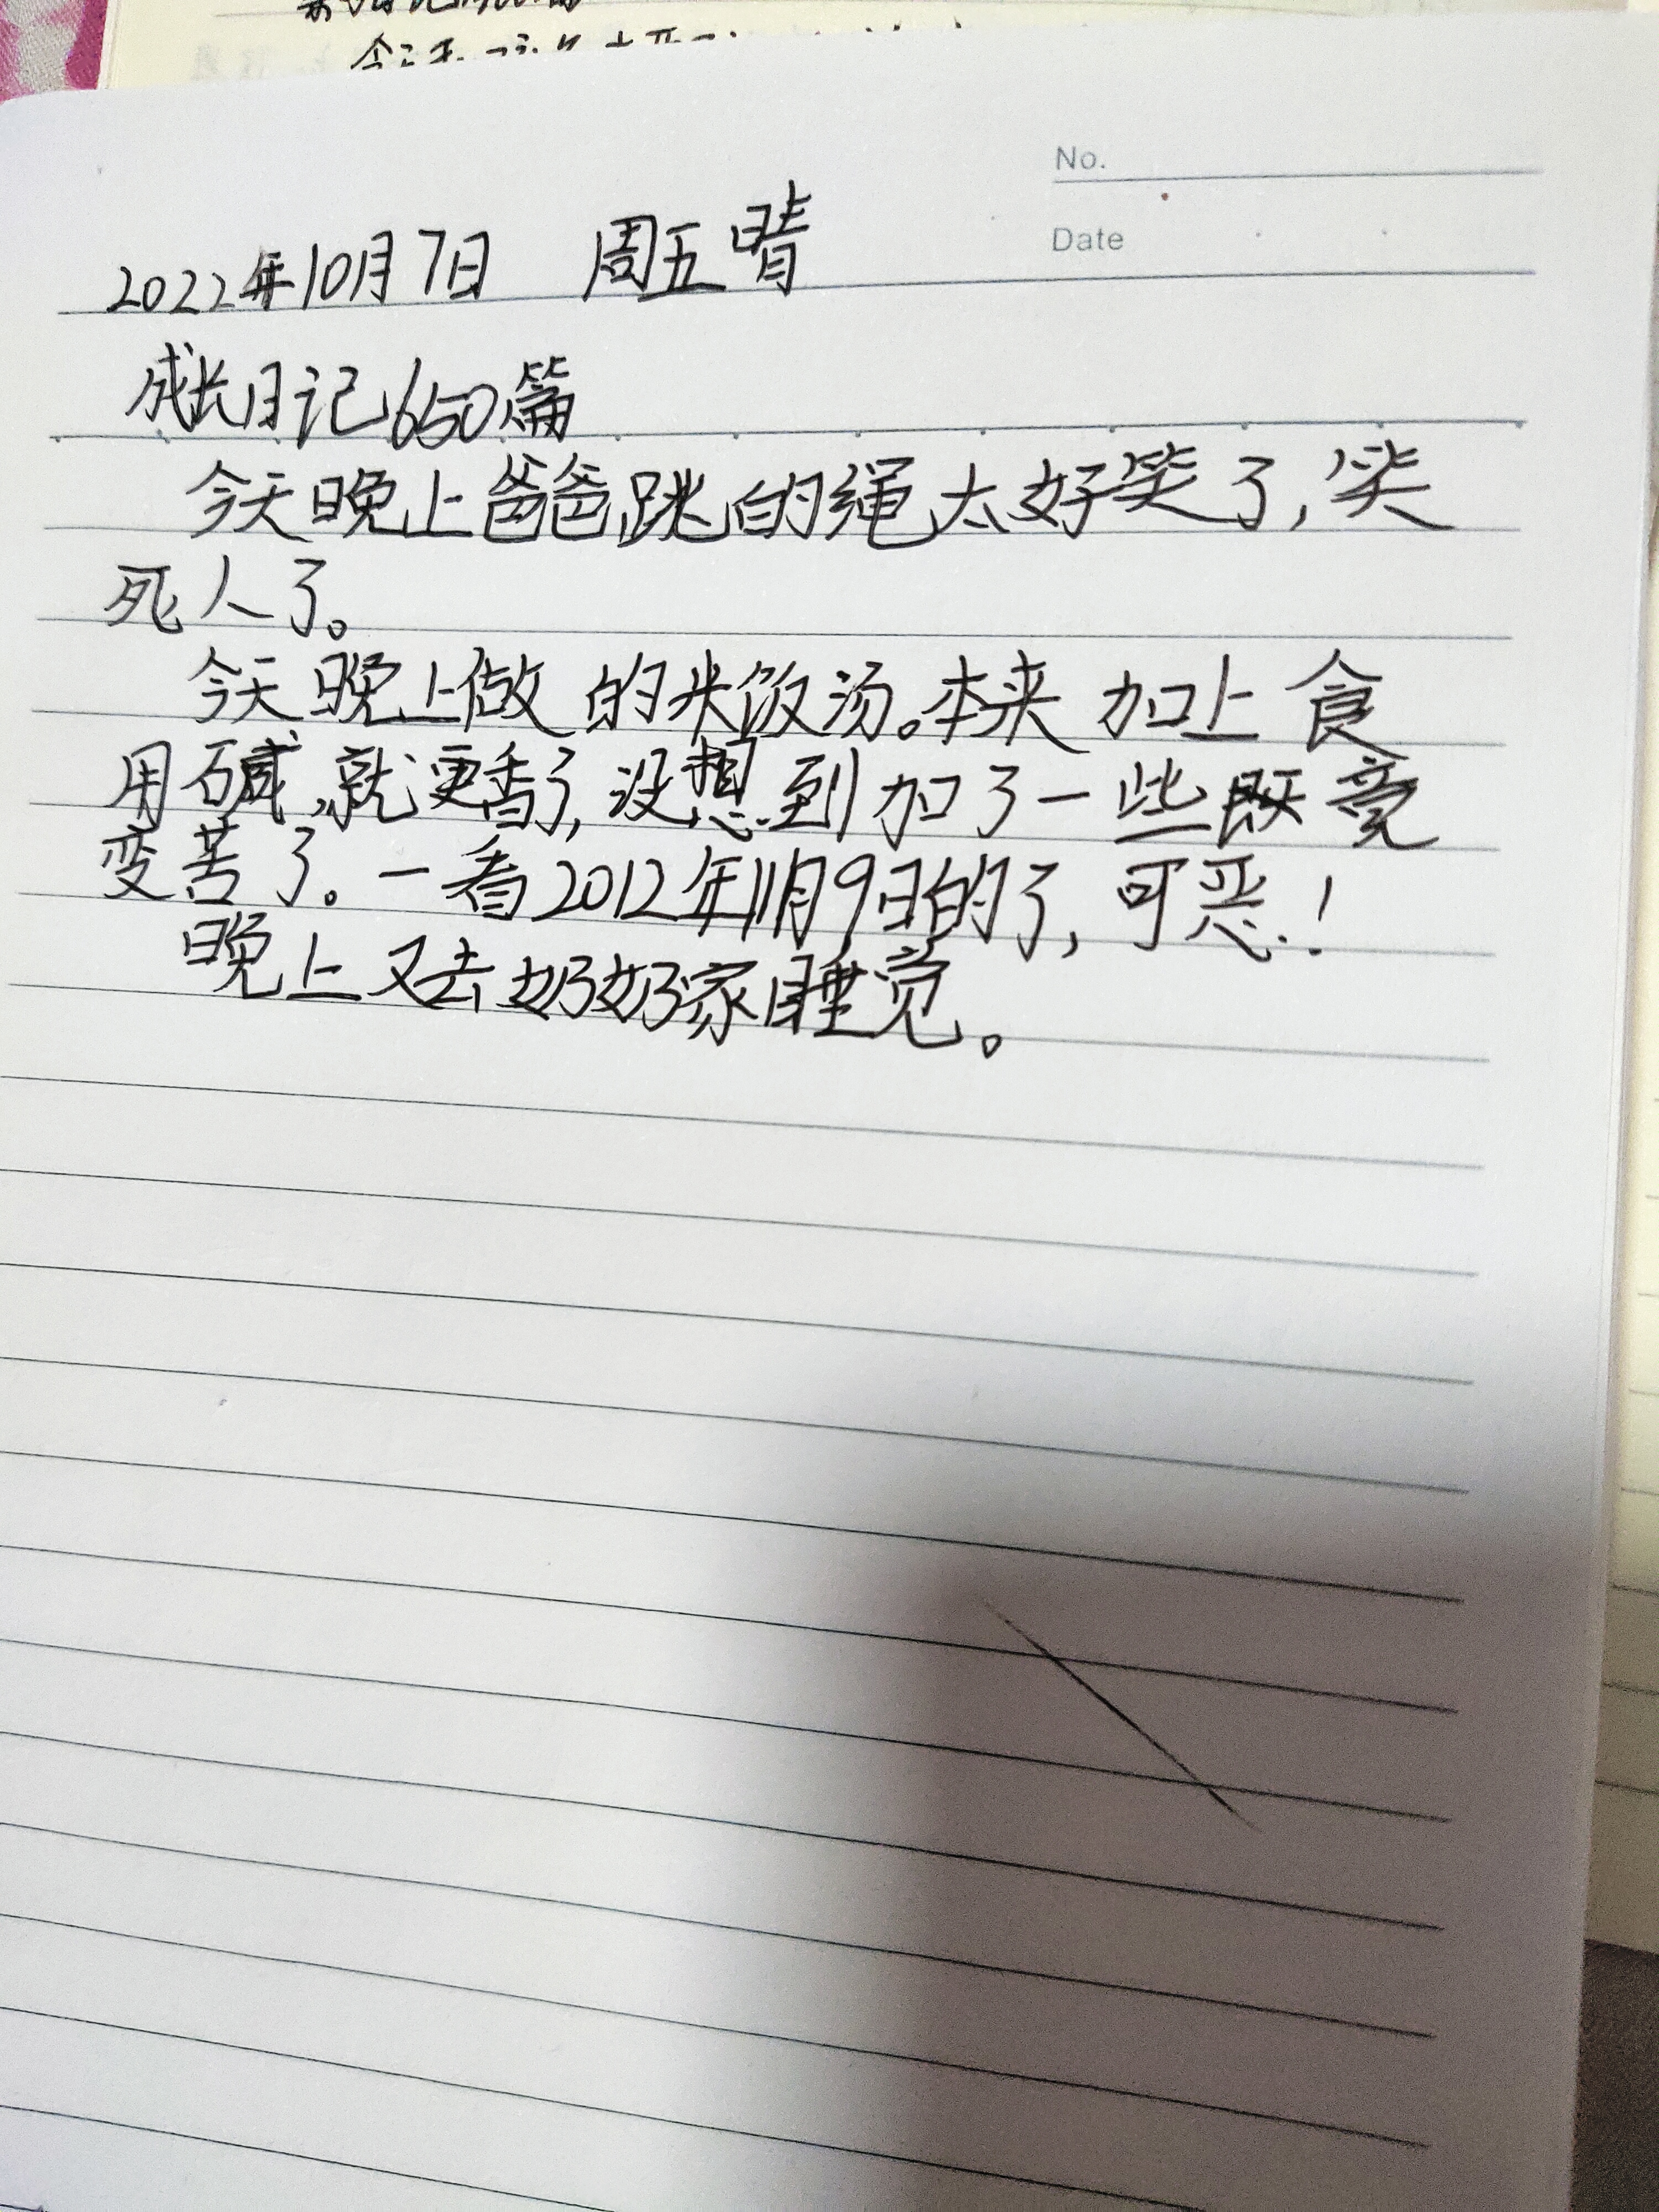 No.
Date
2022年10月7日 周五 晴
成长日记650篇
今天晚上爸爸跳的绳太好笑了,笑
死人了。
今天晚上做的米饭汤。本来加上食
用碱,就更香了,没想到加了一些既竟
变苦了。一看2012年11月9日的了,可恶!
晚上又去奶奶家睡觉。